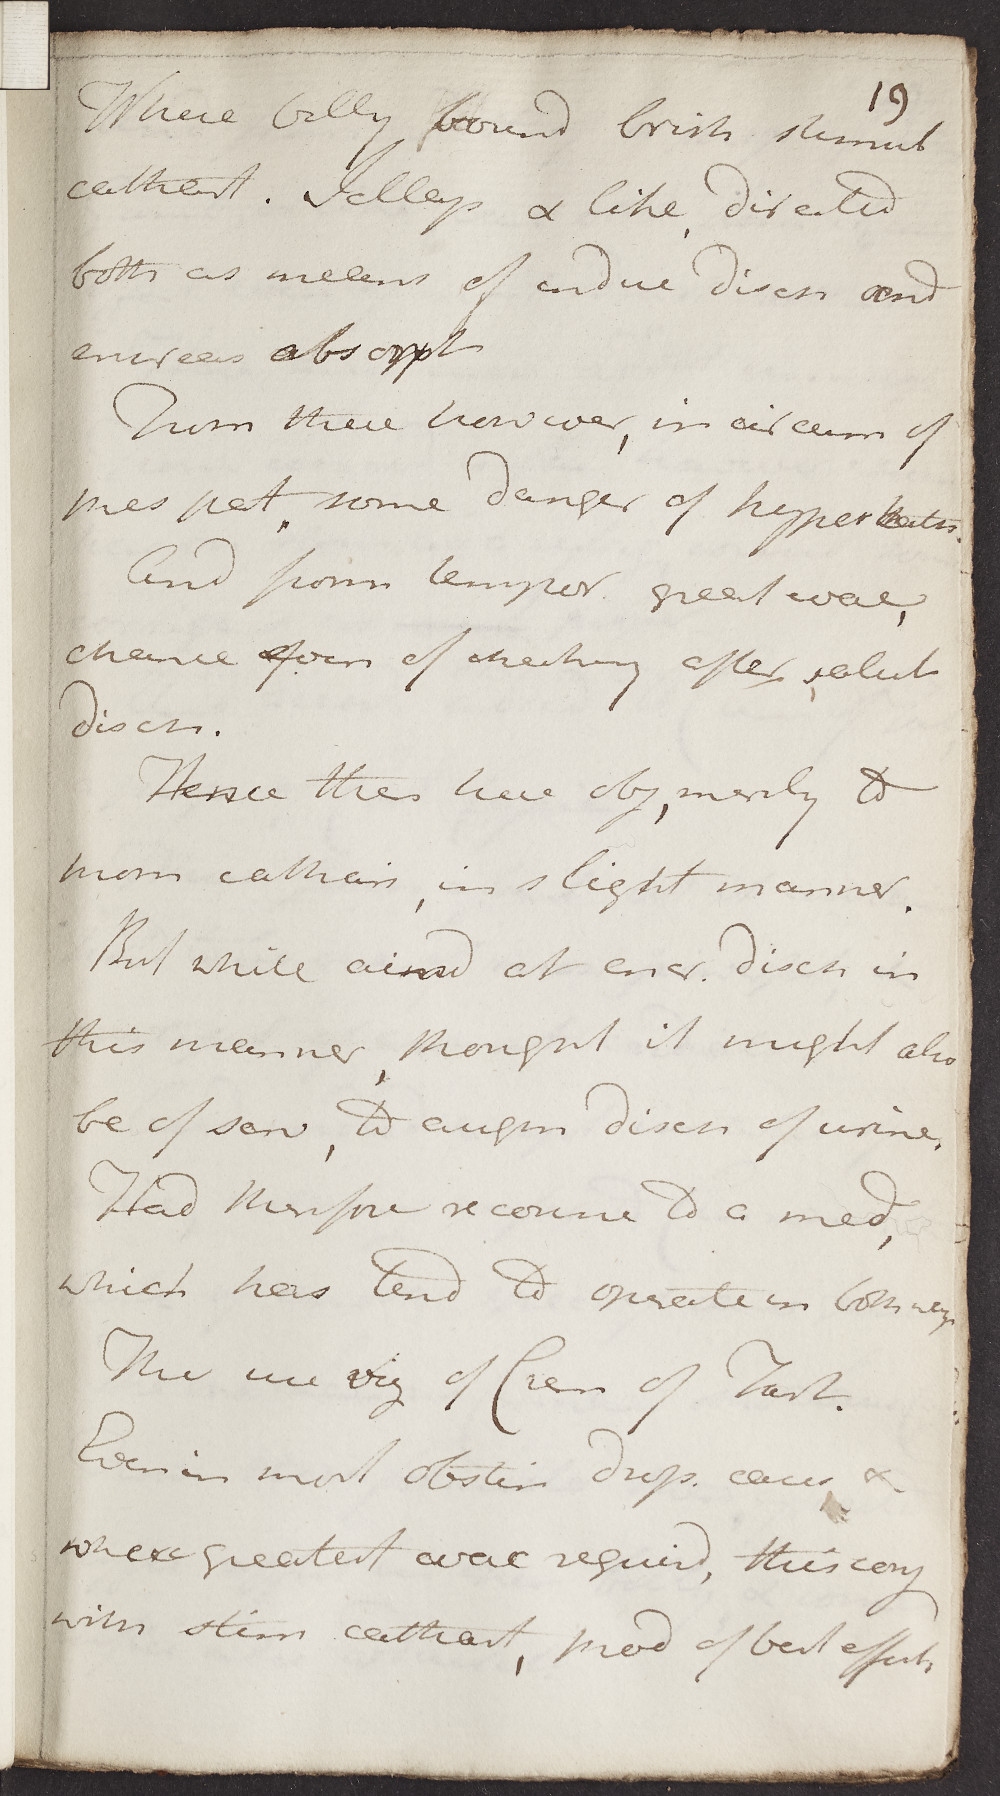 19
Where belly bound brisk stimul
cathart. Jallap & like, directed
both as means of indue disch and
increas absorpt
From these however, in circum of
pres pat, some danger of hypercathar.
And from tempor. great evac,
chance even of checking after, salut
disch.
Hence then here obj, merely to
prom cathars, in slight manner.
But while aimd at incr. disch in
this manner, thought it might also
be of serv, to augm disch of urine.
Had therefore recourse to a med,
which has tend to operate in both ways
The use viz of Crem of Tart.
Even in most obstin drop. cases &
where greatest evac requird, this conj
with stim cathart, prod of best effects